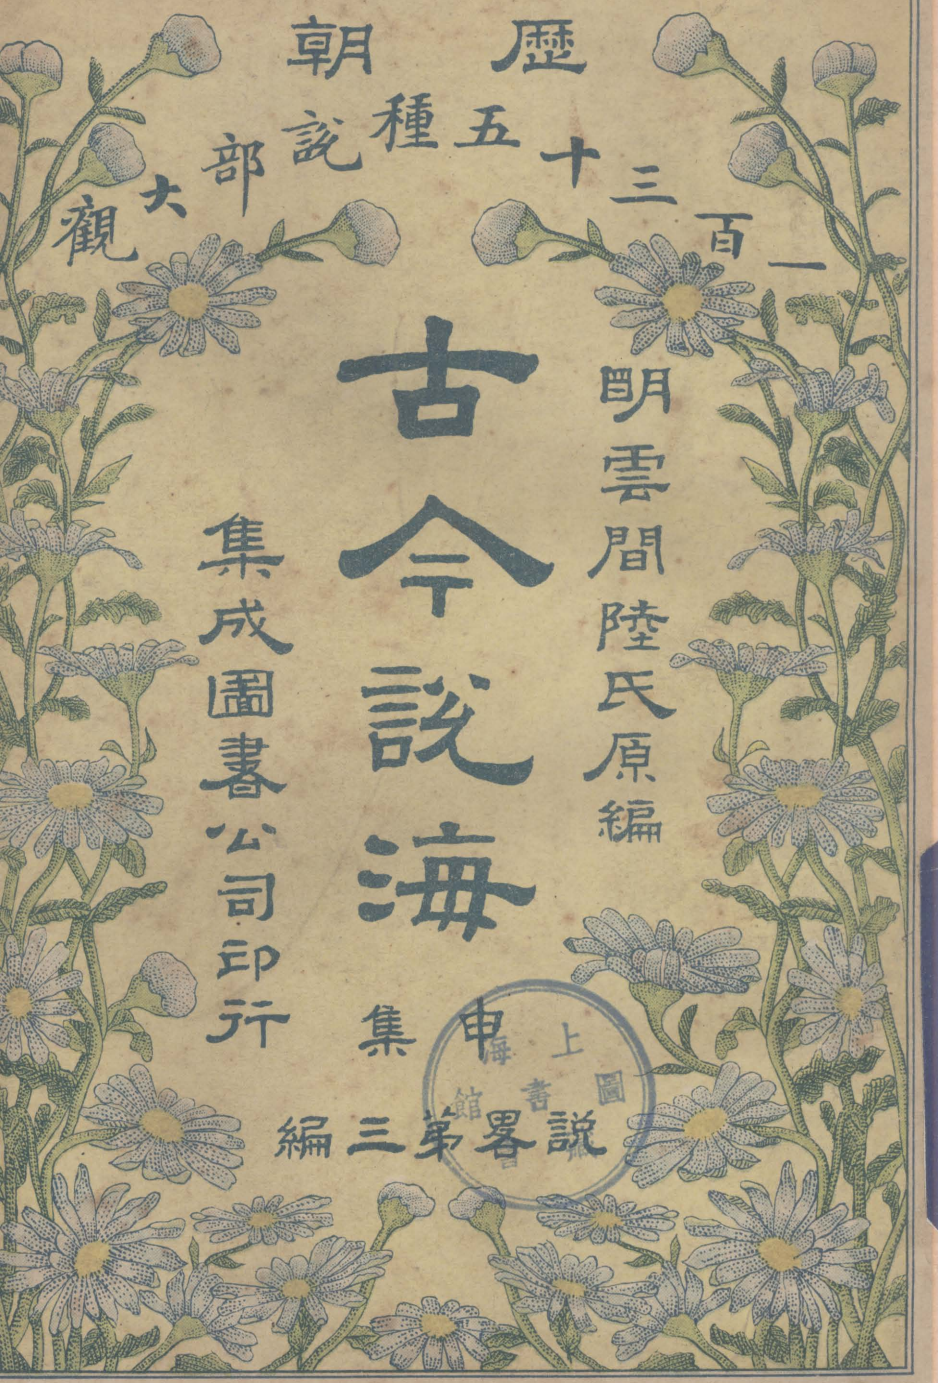 歷朝
一百三十五種說部大觀
明雲間陸氏原編
古今說海
集成圖書公司印行
申集
說畧第三編
上海
圖書館